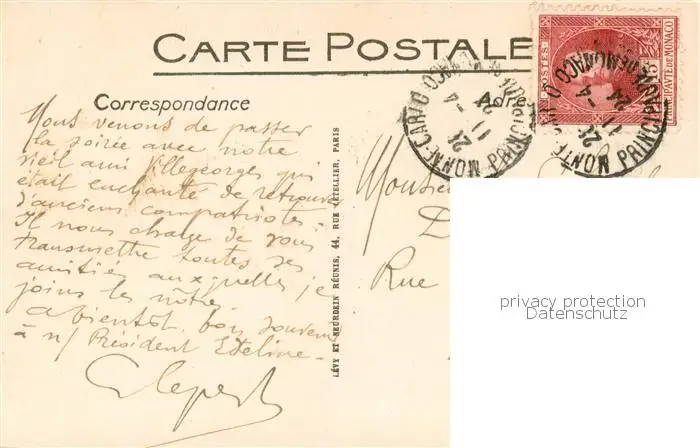 CARTE POSTALE
Correspondance
Adre
Nous venons de passer
la soirée avec notre
vieil ami Villegeorges qui
était enchanté de retrouver
d'anciens compatriotes.
Il nous charge de vous
transmettre toutes ses
amitiés auxquelles je
joins les nôtres
a bientôt. bon souvenir
à n/ Président Edeline.
LÉVY ET NEURDEIN RÉUNIS, 44, RUE LETELLIER, PARIS
Monsieur
D
Rue
POSTES
PAUTÉ DE MONACO
MONTE CARLO
PRINCIPAUTÉ DE MONACO
11 -4
24
MONTE CARLO
PRINCIPAUTÉ DE MONACO
11 -4
24
privacy protection
Datenschutz